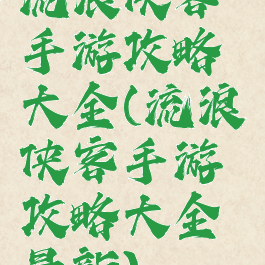 流浪侠客
手游攻略
大全(流浪
侠客手游
攻略大全
最新)